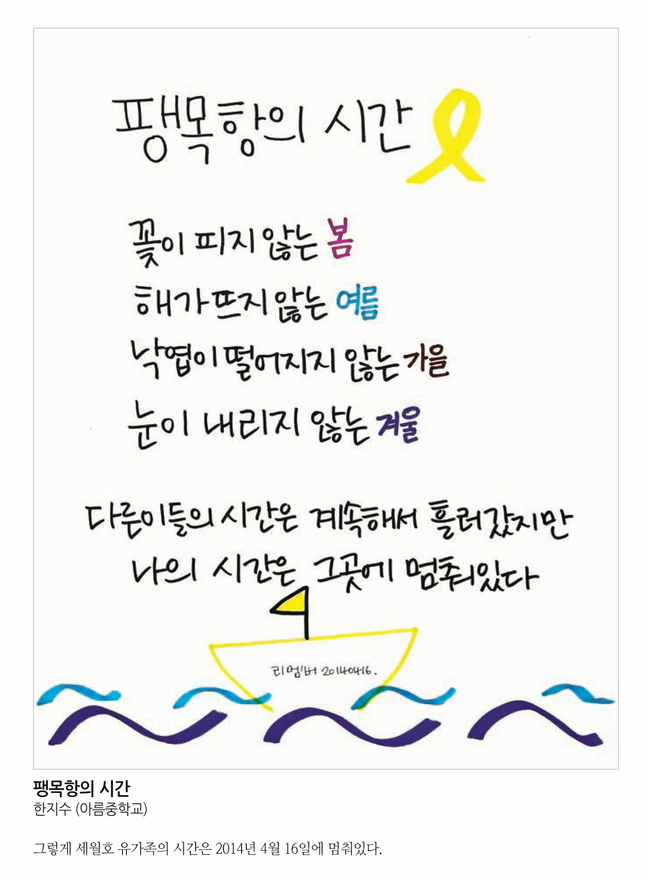 팽목항의 시간
꽃이 피지 않는 봄
해가 뜨지 않는 여름
낙엽이 떨어지지 않는 가을
눈이 내리지 않는 겨울
다른이들의 시간은 계속해서 흘러갔지만
나의 시간은 그곳에 멈춰있다
리멤버 20140416.
팽목항의 시간
한지수 (아름중학교)
그렇게 세월호 유가족의 시간은 2014년 4월 16일에 멈춰있다.